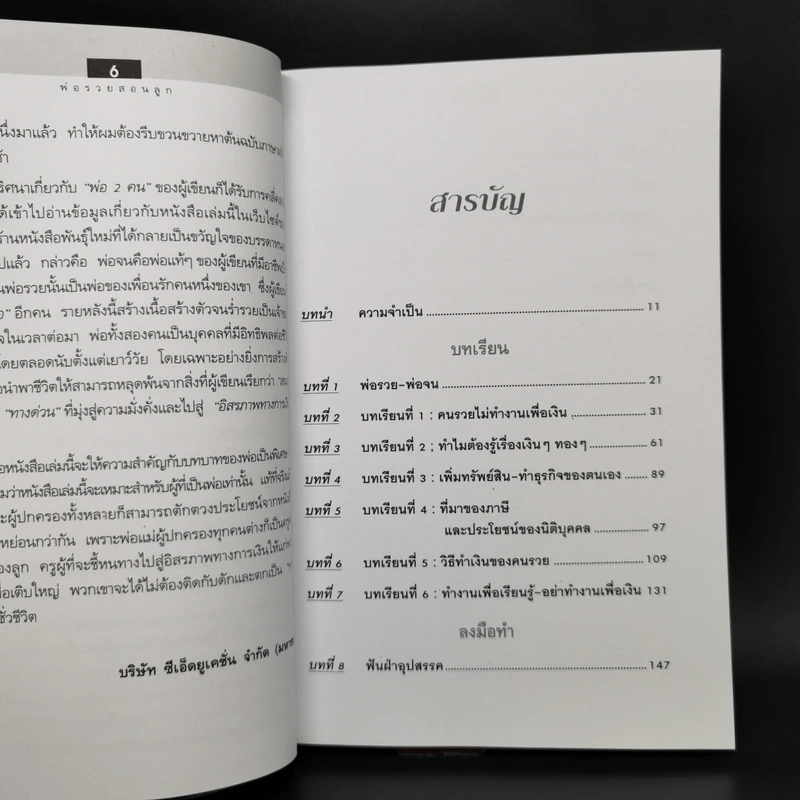 6
พ่อรวยสอนลูก
นึ่งมาแล้ว ทำให้ผมต้องรีบขวนขวายหาต้นฉบับภาษา
ริศนาเกี่ยวกับ "พ่อ 2 คน" ของผู้เขียนก็ได้รับการ
ด้เข้าไปอ่านข้อมูลเกี่ยวกับหนังสือเล่มนี้ในเว็บไซต์
ร้านหนังสือพันธุ์ใหม่ที่ได้กลายเป็นขวัญใจของบรรดา
ปแล้ว กล่าวคือ พ่อจนคือพ่อแท้ๆ ของผู้เขียนที่มีอาชีพ
นพ่อรวยนั้นเป็นพ่อของเพื่อนรักคนหนึ่งของเขา ซึ่งผู้เขียน
อีกคน รายหลังนี้สร้างเนื้อสร้างตัวจนร่ำรวยเป็น
จในเวลาต่อมา พ่อทั้งสองคนเป็นบุคคลที่มีอิทธิพลต่อ
โดยตลอดนับตั้งแต่เยาว์วัย โดยเฉพาะอย่างยิ่งการสร้าง
อนำพาชีวิตให้สามารถหลุดพ้นจากสิ่งที่ผู้เขียนเรียกว่า
"ทางด่วน" ที่มุ่งสู่ความมั่งคั่งและไปสู่ "อิสรภาพทางการ
อหนังสือเล่มนี้จะให้ความสำคัญกับบทบาทของพ่อเป็นพิเศษ
มว่าหนังสือเล่มนี้จะเหมาะสำหรับผู้ที่เป็นพ่อเท่านั้น แท้ที่จริง
ะผู้ปกครองทั้งหลายก็สามารถตักตวงประโยชน์จากหนังสือ
หย่อนกว่ากัน เพราะพ่อแม่ผู้ปกครองทุกคนต่างก็เป็นครู
องลูก ครูผู้ที่จะชี้หนทางไปสู่อิสรภาพทางการเงินให้แก่
อเติบใหญ่ พวกเขาจะได้ไม่ต้องติดกับดักและตกเป็น
ชั่วชีวิต
บริษัท ซีเอ็ดยูเคชั่น จำกัด (มหา
สารบัญ
บทนำ ความจำเป็น 11
บทเรียน
บทที่ 1 พ่อรวย-พ่อจน 21
บทที่ 2 บทเรียนที่ 1 : คนรวยไม่ทำงานเพื่อเงิน 31
บทที่ 3 บทเรียนที่ 2 ; ทำไมต้องรู้เรื่องเงินๆ ทองๆ 61
บทที่ 4 บทเรียนที่ 3 : เพิ่มทรัพย์สิน-ทำธุรกิจของตนเอง 89
บทที่ 5 บทเรียนที่ 4 : ที่มาของภาษี
และประโยชน์ของนิติบุคคล 97
บทที่ 6 บทเรียนที่ 5 : วิธีทำเงินของคนรวย 109
บทที่ 7 บทเรียนที่ 6 : ทำงานเพื่อเรียนรู้-อย่าทำงานเพื่อเงิน 131
ลงมือทำ
บทที่ 8 ฟันฝ่าอุปสรรค 147